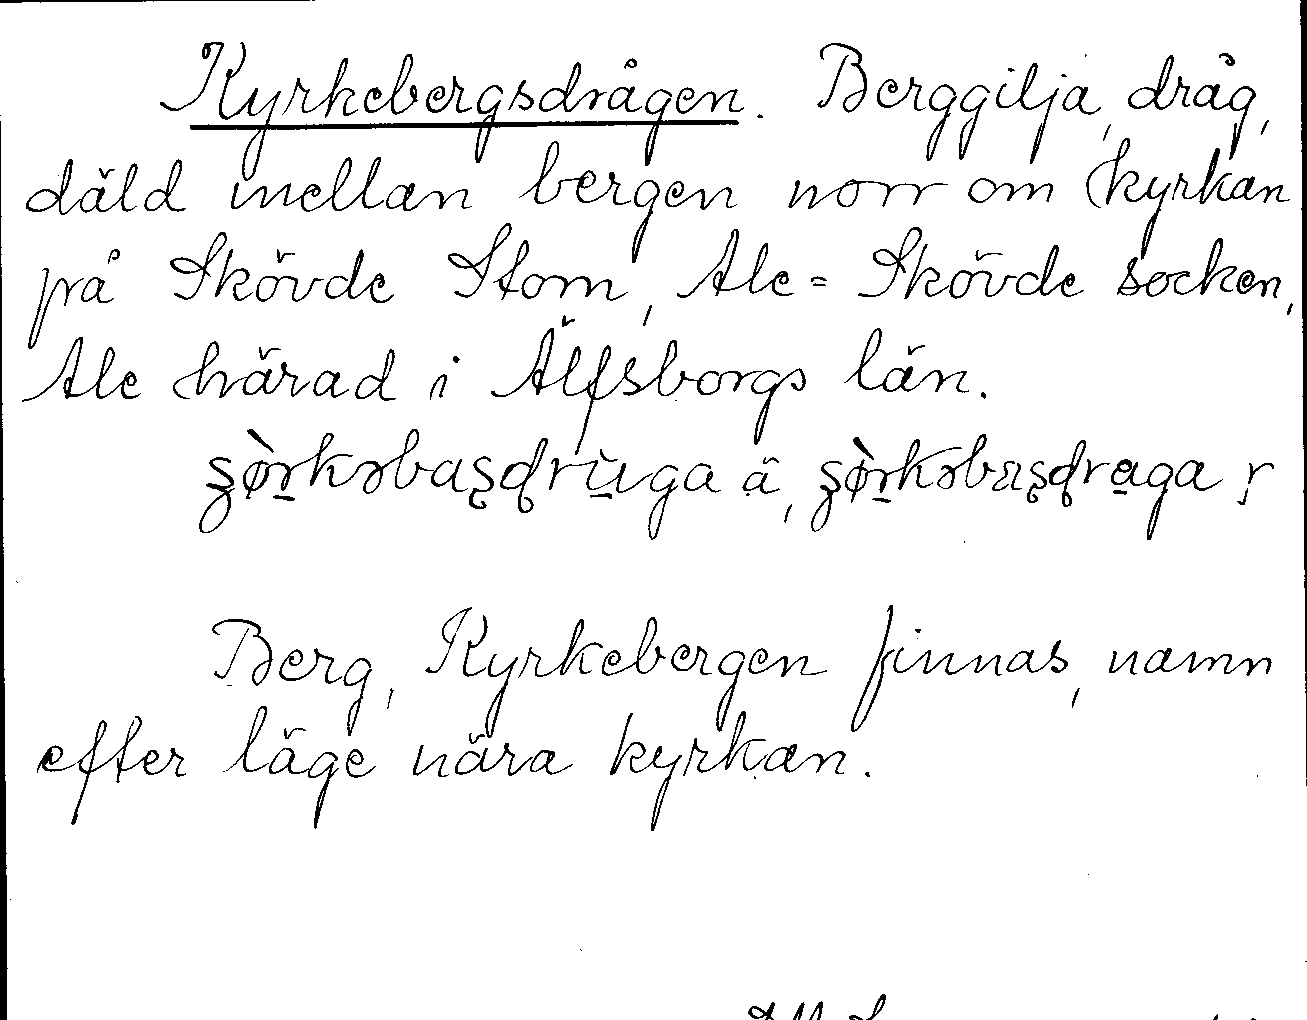 Kyrkebergsdrågen. Berggilja, dråg,
däld mellan bergen norr om kyrkan
på Skövde Stom, Ale=Skövde socken,
Ale härad i Älfsborgs län.
Berg, Kyrkebergen finnas, namn
efter läge nära kyrkan.